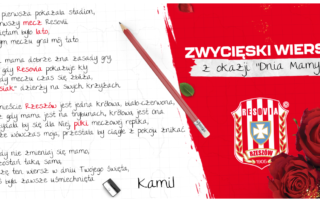 pierwsza pokazała stadion,
pierwszy mecz Resovii
było lato,
meczu grał mój tato
mama dobrze zna zasady gry,
gdy Resovia pokazuje kły
gdy meczu czas się zbliża,
dzierży na swych krzyżach
Rzeszów jest jedna królowa,
gdy mama jest na trybunach, królowa jest ona
się dla Niej piłki meczowej replika,
wówczas moja, przestała by ciągle z pokoju znikać
nie zmieniaj się mamo,
pozostań taką samą
ten wiersz w dniu Twojego Święta,
była zawsze uśmiechnięta
Kamil
ZWYCIĘSKI WIERSZ
z okazji "Dnia Mamy
RESOVIA
RZESZÓW
1905